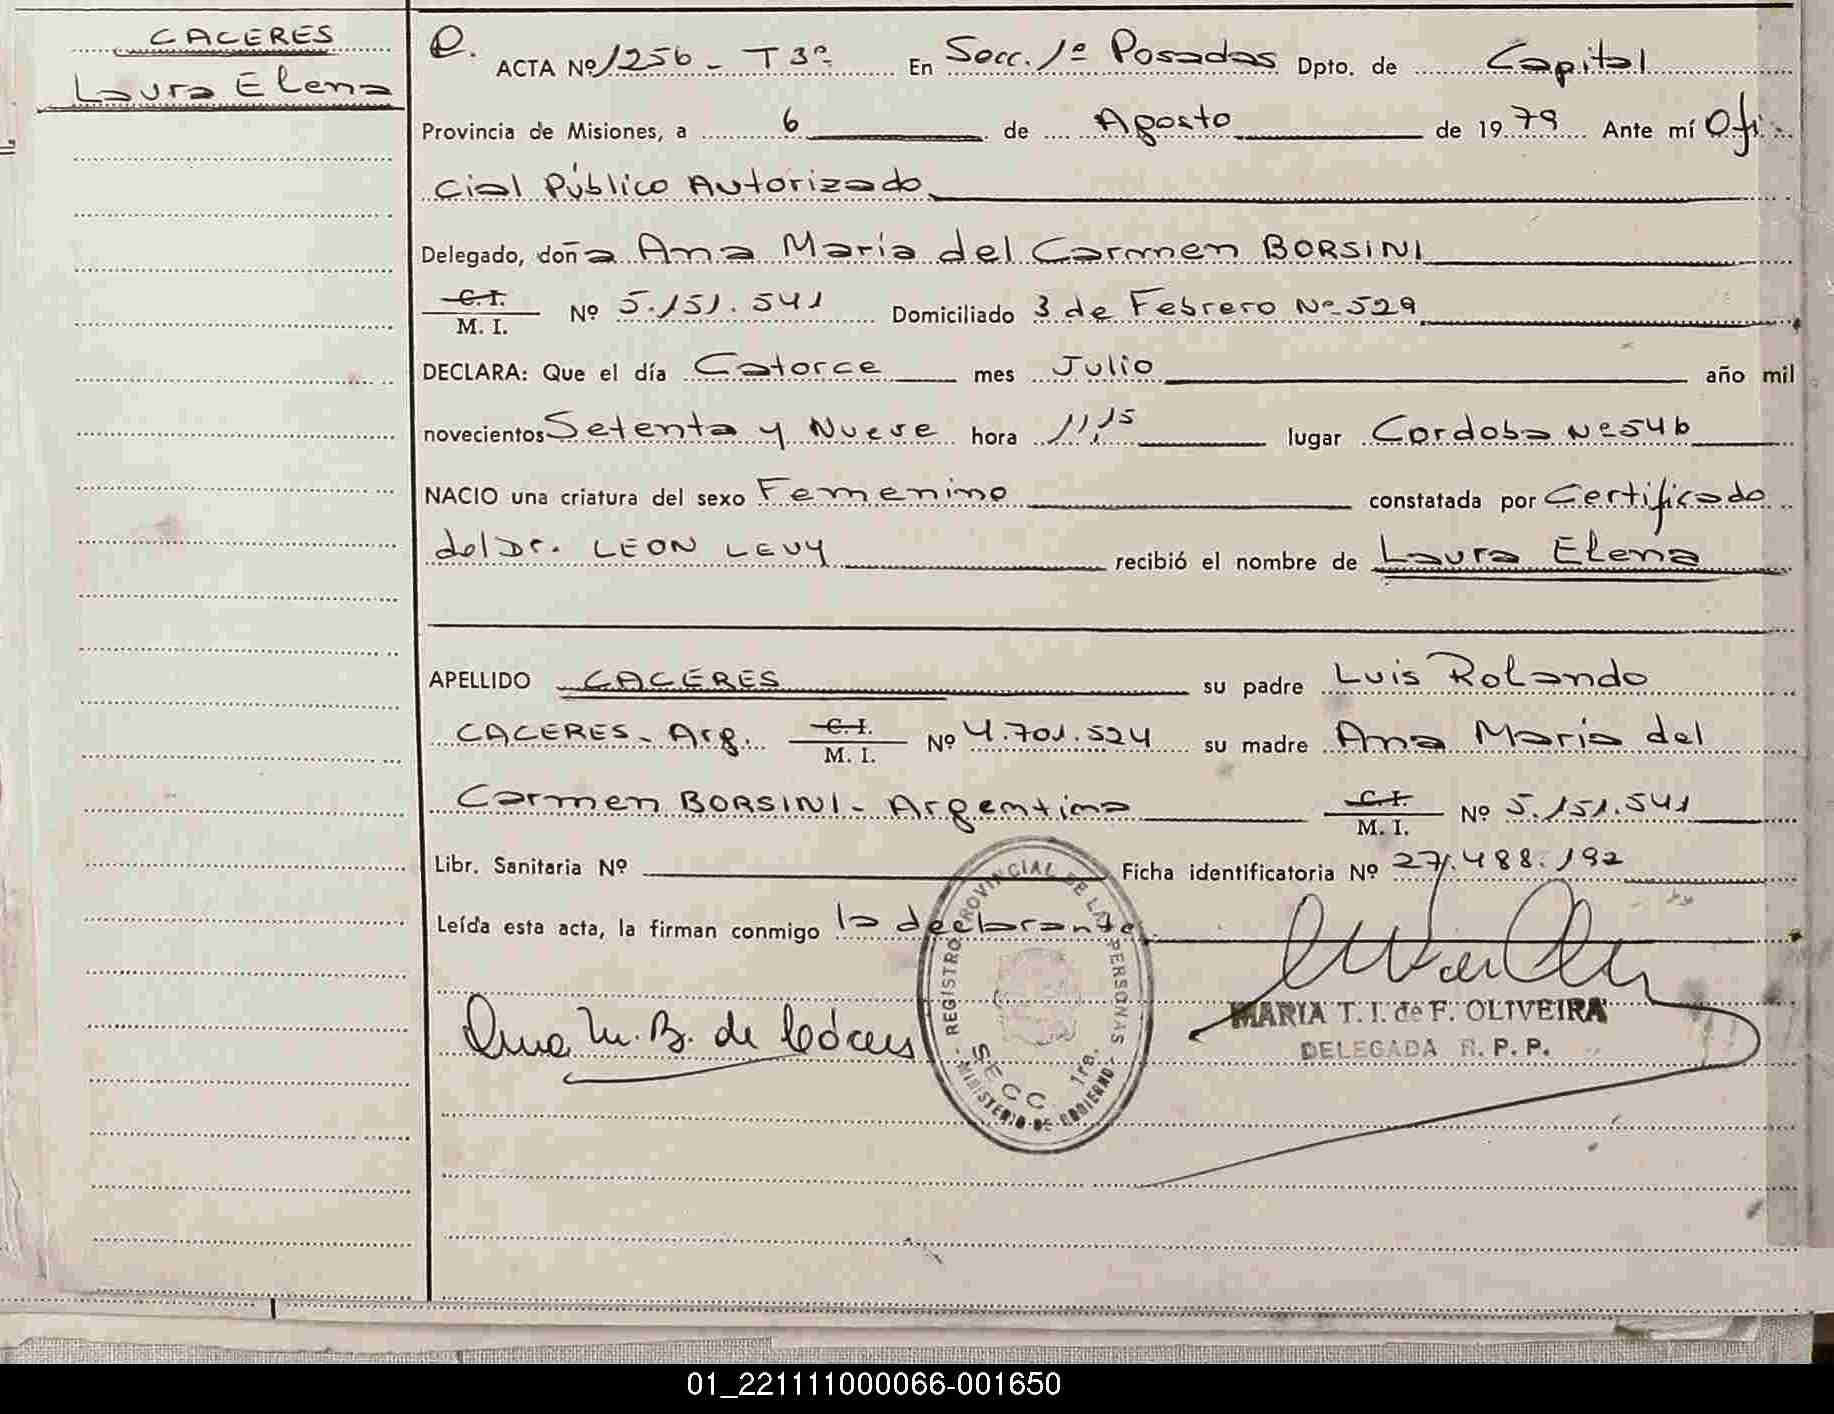 CACERES
Laura Elena
P. ACTA Nº 1256 - T3º- En Secc. 1ª Posadas Dpto. de Capital
Provincia de Misiones, a 6 de Agosto de 1979 Ante mí Ofi-
cial Público Autorizado
Delegado, doña Ana Maria del Carmen BORSINI
C.I.
M. I. Nº 5.151.541 Domiciliado 3 de Febrero Nº 529
DECLARA: Que el día Catorce mes Julio año mil
novecientos Setenta y Nueve hora 11,15 lugar Cordoba Nº 546
NACIO una criatura del sexo Femenino constatada por Certificado
del Dr. LEON LEVY recibió el nombre de Laura Elena
APELLIDO CACERES su padre Luis Rolando
CACERES - Arg. C.I.
M. I. Nº 4.701.524 su madre Ana Maria del
Carmen BORSINI - Argentina C.I.
M. I. Nº 5.151.541
Libr. Sanitaria Nº Ficha identificatoria Nº 27.488.192
Leída esta acta, la firman conmigo la declarante
Ana M. B. de Cáceres
REGISTRO PROVINCIAL DE LAS PERSONAS
SECC. 1ra.
MINISTERIO DE GOBIERNO
MARIA T. I. de F. OLIVEIRA
DELEGADA R. P. P.
01_221111000066-001650